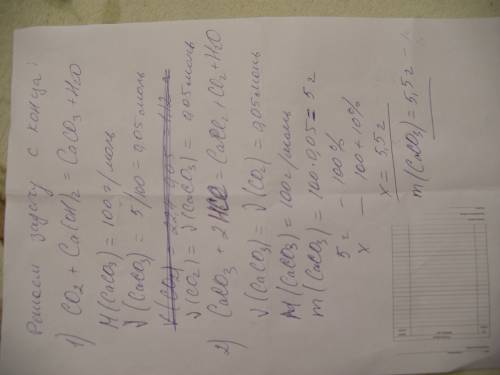 Решаем задачу с конца:
1) CO2 + Ca(OH)2 = CaCO3 + H2O
M(CaCO3) = 100 г/моль
ν(CaCO3) = 5/100 = 0,05 моль
V(CO2) = 22,4 · 0,05 = 1,12 л
ν(CO2) = ν(CaCO3) = 0,05 моль
2) CaCO3 + 2HCl = CaCl2 + CO2 + H2O
ν(CaCO3) = ν(CO2) = 0,05 моль
M(CaCO3) = 100 г/моль
m(CaCO3) = 100 · 0,05 = 5 г
5 г — 100%
x — 100 + 10%
x = 5,5 г
m(CaCO3) = 5,5 г